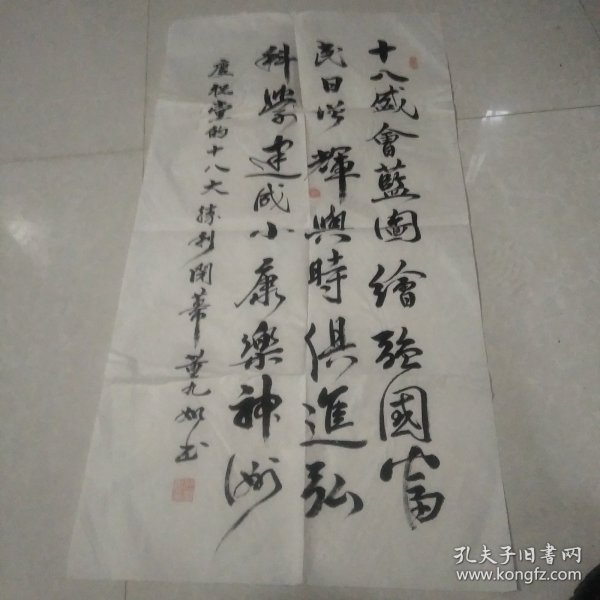 十八盛會藍圖繪強國富
民日增輝與時俱進弘
科學建成小康樂神洲
慶祝黨的十八大勝利開幕董九如书
孔夫子旧書网
www.kongfz.com